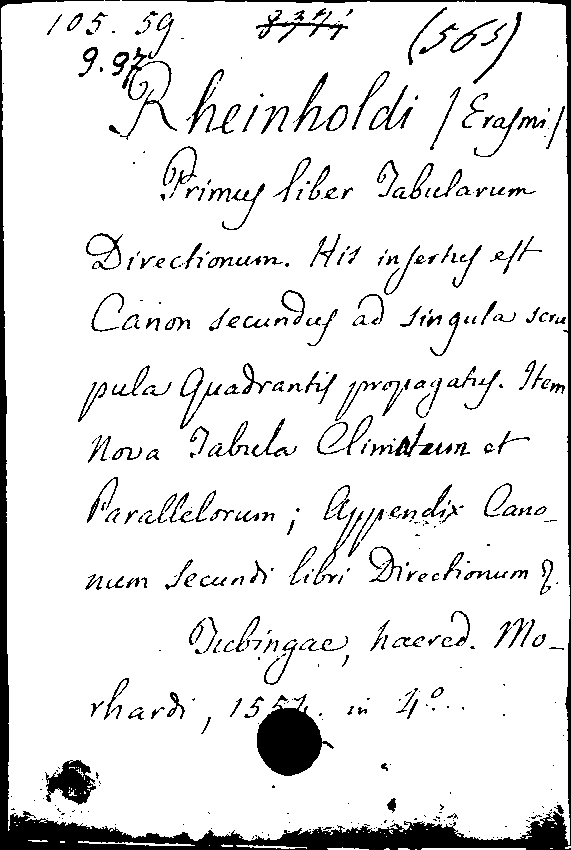 105. 59. 8374 (563)
9.97
Rheinholdi / Erasmi /
Primus liber Tabularum
Directionum. His insertus est
Canon secundus ad singula scru-
pula Quadrantis propagatus. Item
Nova Tabula Climatum et
Parallelorum ; Appendix Cano-
num secundi libri Directionum
Tubingae, haered. Mo-
rhardi, 1554. in 4o.